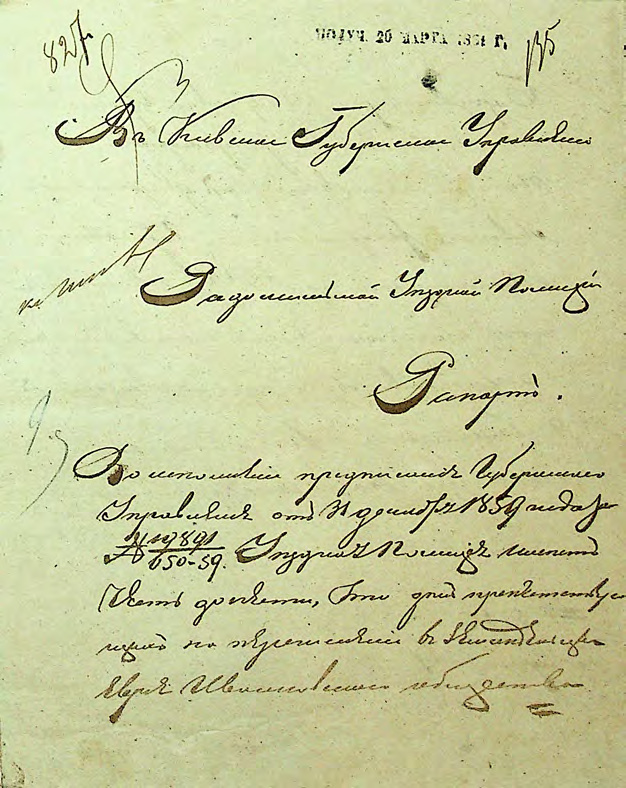 827
ПОЛУЧ. 20 МАРТА 1861 Г.
Въ Киевское Губернское Управленіе
Радомысльской Уездной Полиціи
Рапортъ.
Во исполненіе предписанія Губернскаго
Управленія отъ 31 декабря 1859 года за
№ 19891/650-59. Уездная Полиція имеетъ
честь донести, что для препятствую-
на перечисленіе въ
Евреи Ивановскаго общества